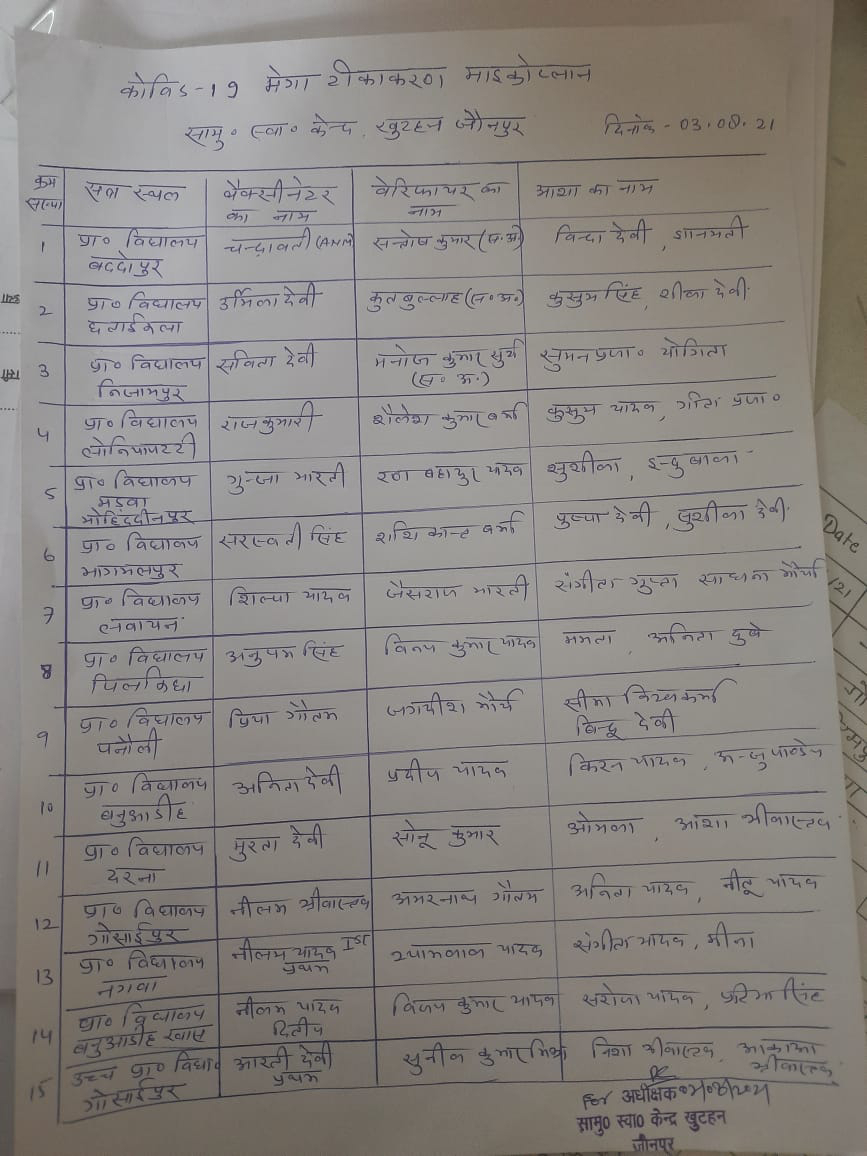 कोविड-19 मेगा टीकाकरण माइक्रोप्लान
सामु० स्वा० केन्द्र, खुटहन जौनपुर दिनांक - 03.08.21
क्रम संख्या सत्र स्थल वैक्सीनेटर का नाम वेरिफायर का नाम आशा का नाम
1 प्रा० विद्यालय बददोपुर चन्द्रावती (ANM) सन्तोष कुमार (स.अ) विन्दा देवी, ज्ञानमती
2 प्रा० विद्यालय उर्मिला देवी कुतबुल्लाह (स०अ०) कुसुम सिंह, शीला देवी
3 प्रा० विद्यालय निजामपुर सविता देवी मनोज कुमार सुर्य (स० अ.) सुमन प्रजा० योगिता
4 प्रा० विद्यालय लोनियापटटी राजकुमारी शैलेश कुमार वर्मा कुसुम यादव, गीता प्रजा०
5 प्रा० विद्यालय मड़वा मोहिददीनपुर गुन्जा भारती रण बहादुर यादव सुशीला, इन्दुबाला
6 प्रा० विद्यालय भागमलपुर सरस्वती सिंह शशि कान्त वर्मा पुष्पा देवी, सुशीला देवी
7 प्रा० विद्यालय लवायन शिल्पा यादव जैसराज भारती संगीता गुप्ता साधना मौर्या
8 प्रा० विद्यालय पिलकिछा अनुपम सिंह विनय कुमार यादव ममता, अनिता दुबे
9 प्रा० विद्यालय पनौली प्रिया गौतम जगदीश मौर्य सीमा विश्वकर्मा बिन्दू देवी
10 प्रा० विद्यालय बनुआडीह अनिता देवी प्रदीप यादव किरन यादव, अन्जु पाण्डेय
11 प्रा० विद्यालय दरना मुरता देवी सोनू कुमार ओमला, आशा श्रीवास्तव
12 प्रा० विद्यालय गोसाईपुर नीलम श्रीवास्तव अमरनाथ गौतम अनिता यादव, नीतू यादव
13 प्रा० विद्यालय नगवा नीलम यादव Ist प्रथम श्यामलाल यादव संगीता यादव, मीना
14 प्रा० विद्यालय बनुआडीह खास नीलम यादव द्वितीय विजय कुमार यादव सरोजा यादव, प्रतिमा सिंह
15 उच्च प्रा० विद्या० गोसाईपुर आरती देवी प्रथम सुनील कुमार मिश्र निशा श्रीवास्तव, श्रीवास्तव
For अधीक्षक
सामु० स्वा० केन्द्र खुटहन
जौनपुर
Date